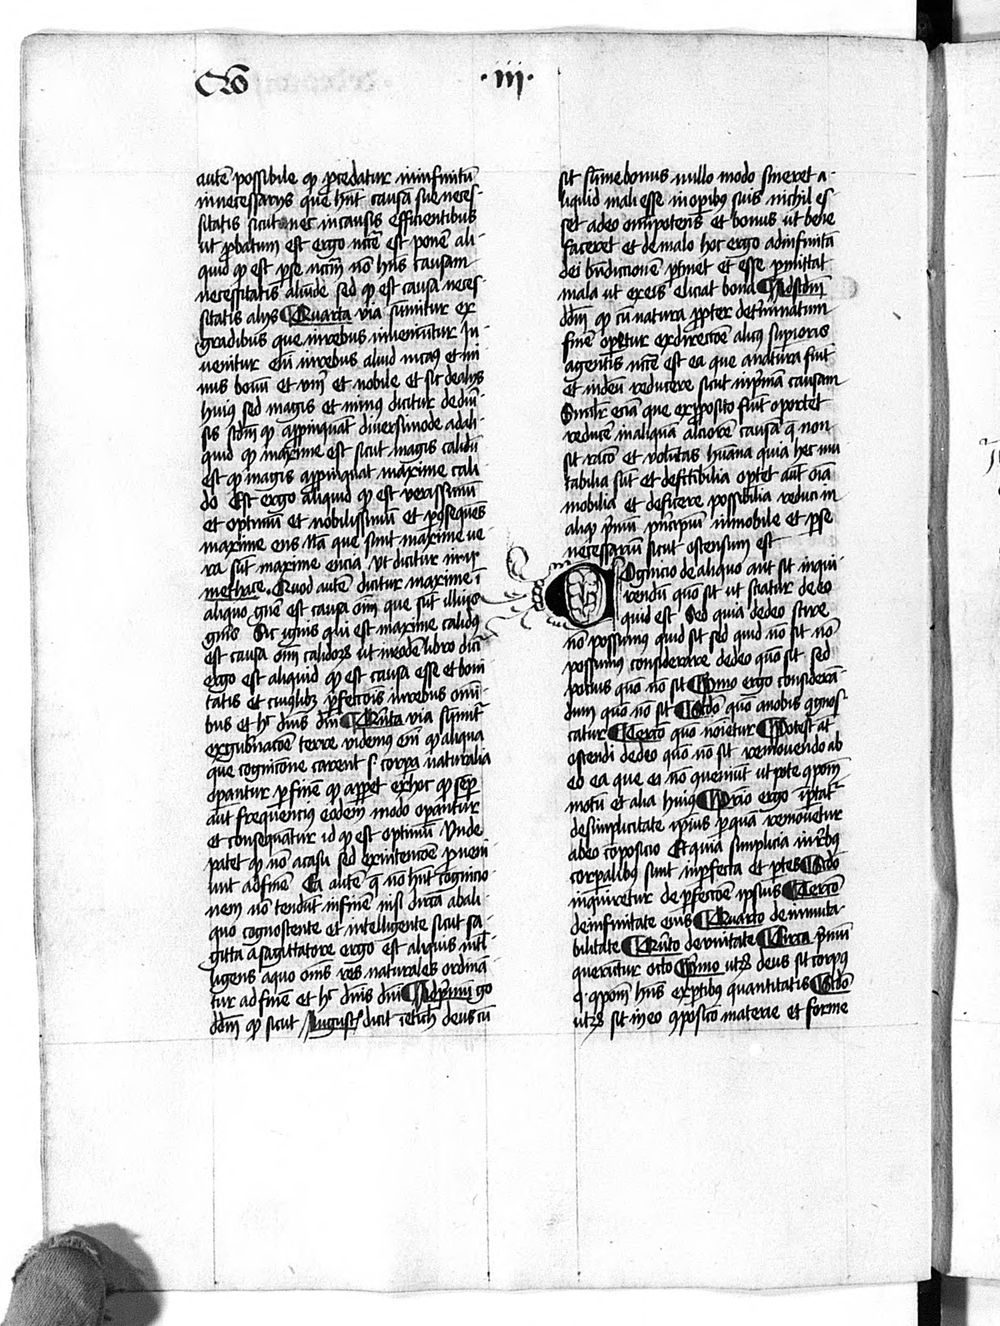 Qo ·iij·
autē possibile qꝫ ꝓcedatur ininfinitū
innecessarijs que hn̄t causā sue neces-
sitatis sicut nec incausis efficientibus
ut ꝓbatum est ergo ncē̄ est ponē ali-
quid qꝫ est ꝑse nccm̄ nō hn̄s causam
necessitatis aliūde sed qꝫ est causa neces-
sitatis alijs Quarta via sūmitur ex
gradibus que inrebus inueniūtur In-
uenitur em̄ inrebus aliud magꝰ et mi
nus bonū et vm̄ et nobile et sic dealijs
huiꝰ sed magis et minꝰ dicitur dediu̾-
sis scdm̄ qꝫ appinquāt diuersimode adali-
quid qꝫ maxime est sicut magis calidū
est qꝫ magis appinquat maxime cali
do Est ergo aliquid qꝫ est verassimū
et optimū et nobilissimū et ꝑ ꝯseques
maxime ens Nā que sunt maxime ve
ra sūt maxime encia vt dicitur inijͦ
methace Quod autē dicitur maxime ī
aliquo gn̄e est causa om̄ que sūt illius
gn̄is Sic ignis qui est maxime calidꝰ
est causa om̄ calidoꝝ ut ineodē libro dici
ergo est aliquid qꝫ est causa esse et boni
tatis et cuiuslibꝫ ꝑfectōis inrebus omi-
bus et hͦ dm̄s dm̄ Quīta via sūmit̾
exgubnacōe terre videmꝰ em̄ qꝫ aliqua
que cognicōne carent sͨ corꝑa naturalia
opantur ꝓꝑ finē qꝫ appet exhoc qꝫ sēꝑ
aut frequencius eodem modo opantur
et consequātur id qꝫ est optimū Unde
patet qꝫ nō acasu sed exintencōe ꝑueni-
unt adfinē Ea autē q̄ nō hn̄t cognicio-
nem nō tendūt infinē nisi dirctā abali-
quo cognoscente et intelligente sicut sa-
gitta a sagittatore ergo est aliquis intl̄-
ligens aquo om̄s res naturales ordinā-
tur ad finē et hͦ dm̄s dm̄ Adp̄mū go
ddm̄ qꝫ sicut August̾ dicit ī ench̄ deus cū
sit sūme bonus nullo modo sineret a-
liquid mali esse inopibꝰ suis nichil es-
set adeo om̄ipotens et bonus ut bene
faceret et de malo hoc ergo adinfinitā
dei bn̄dictionē ꝑtinet et esse ꝑmittat
mala ut exeis eliciat bona Adscdm̄
ddm̄ qꝫ cū natura ꝓpter det̾minatum
finē opetur exdirectōe alicꝰ supioris
agentis ncē̄ est ea que anatura fiūt
et indeū reducere sicut inp̄mā causam
Simlr̄ ecia que exꝓposito fiūt oportet
reducē inaliquā alciorē causā q̄ non
sit racō et volūtas hūana quia hec mu
tabilia sūt et defectibilia optet aut̄ oīa
mobilia et deficere possibilia reduci in
aliqꝫ p̄mū pncipiū inmobile et ꝑse
necessariū sicut ostensum est
Cognicio de aliquo aut sit inqui-
rendū quō sit ut sciatur de eo
quid est Sed quia dedeo scire
nō possumꝰ quid sit sed quid nō sit nō
possumꝰ considerare dedeo quō sit sed
potius quō nō sit Pimo ergo considerā-
dum quō nō sit Scdō quō anobis ꝯgnos-
catur Tercō quō noīetur Potest aut̄
ostendi dedeo quō nō sit remouendo ab
eo ea que ei nō ꝯueniūt utpote ꝯposi
motū et alia huiꝰ Pͥo ergo īqrat̾
desimplicitate ipsius ꝑ quā remouetur
abeo cōposicio Et quia simplicia inrebꝰ
corꝑalibꝰ sunt inꝑfecta et ꝑtes Scdō
inquiretur deꝑfectōe ipsius Tercō
deinfinitate eius Quarto deinmuta-
bilitate Quīto devnitate Circa p̄mū
querūtur octo Pimo utꝝ deus sit corpꝰ
qͣ ꝯposi hn̄s exꝑtibꝰ quantitatis Scdō
utꝝ sit ineo ꝯposicō materie et forme